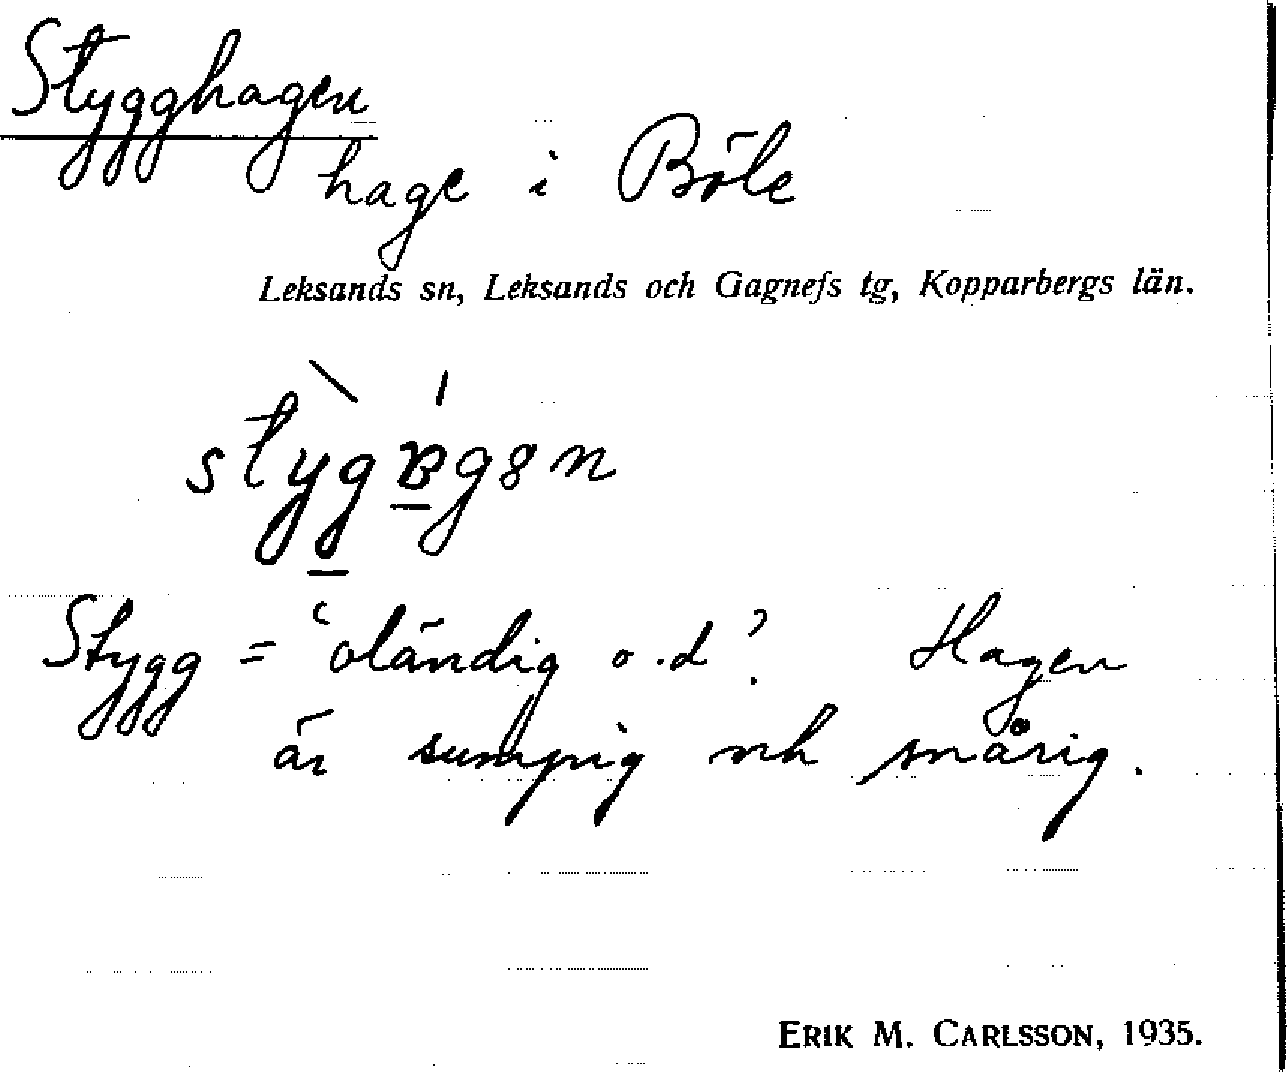 Stygghagen
hage i Böle
Leksands sn, Leksands och Gagnefs tg, Kopparbergs län.
Stygg = 'oländig o.d.' Hagen
är sumpig och snårig.
ERIK M. CARLSSON, 1935.